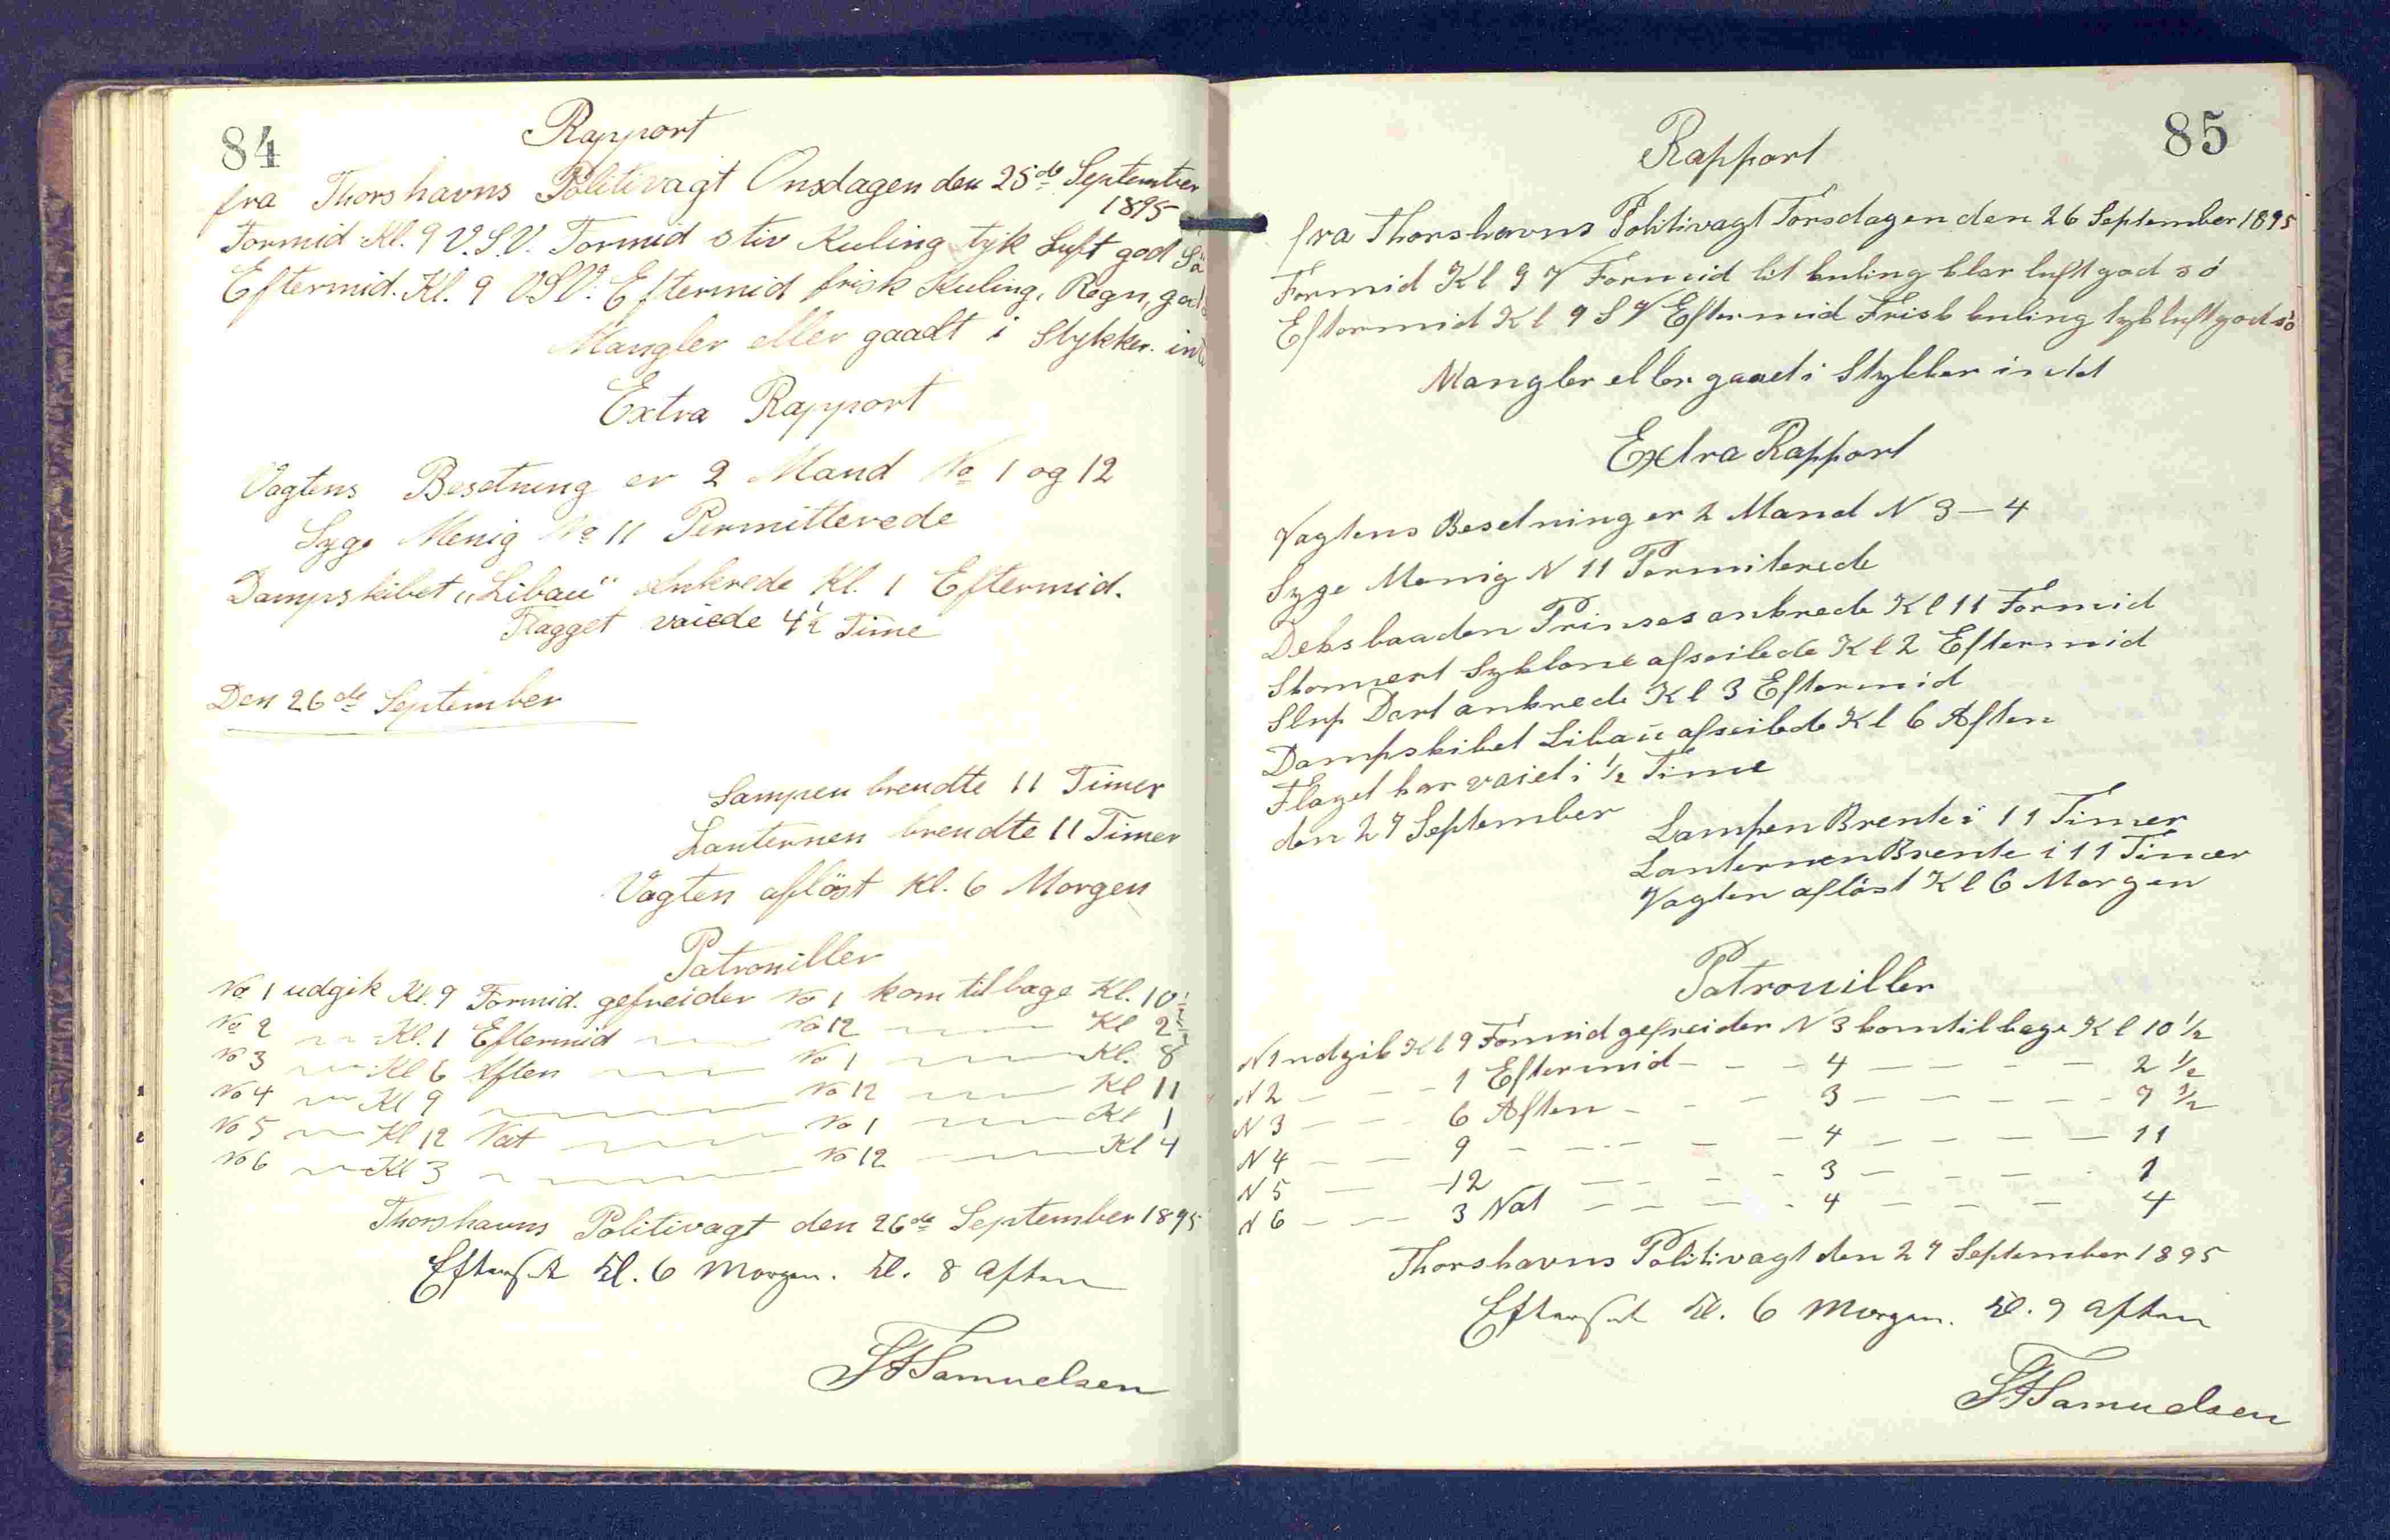 84
Rapport
fra Thorshavns Politivagt Onsdagen den 25de September
1895
Formid Kl. 9 V.S.V. Formid stiv Kuling tyk Luft god Sö
Eftermid. Kl. 9 VSV. Eftermid frisk Kuling, Regn, god
Mangler eller gaadt i Stykker.
Extra Rapport
Vagtens Besetning er 2 Mand No 1 og 12
Syge Menig No 11 Permitterede
Dampskibet „Libau" Ankrede Kl. 1 Eftermid.
Flagget vaiede 4½ Time
Den 26de September
Lampen brendte 11 Timer
Lanternen brendte 11 Timer
Vagten aflöst Kl. 6 Morgen
Patrouiller
No 1 udgik Kl. 9 Formid. gefreider No 1 kom tilbage Kl. 10½
No 2 — Kl. 1 Eftermid — No 12 — Kl 2½
No 3 — Kl 6 Aften — No 1 — Kl. 8
No 4 — Kl 9 — No 12 — Kl 11
No 5 — Kl 12 Nat — No 1 — Kl 1
No 6 — Kl 3 — No 12 — Kl 4
Thorshavns Politivagt den 26de September 1895
Kl. 6 Morgen. Kl. 8 Aften
Samuelsen
85
Rapport
fra Thorshavns Politivagt Torsdagen den 26 September 1895
Formid Kl 9 V Formid lit kuling klar luft god sö
Eftermid Kl 9 S V Eftermid Frisk kuling tyk luft god sö
Mangler eller gaaet i Stykker intet
Extra Rapport
Vagtens Besetning er 2 Mand N 3 — 4
Syge Menig N 11 Permiterede
Deksbaaden Prinses ankrede Kl 11 Formid
Skonnert Syklone afseilede Kl 2 Eftermid
Slup Dart ankrede Kl 3 Eftermid
Dampskibet Libaú afseilede Kl 6 Aften
Flaget har vaiet i ½ Time
den 27 September
Lampen Brente i 11 Timer
Lanternen Brente i 11 Timer
Vagten aflöst Kl 6 Morgen
Patrouiller
N 1 udgik Kl 9 Formid gefreider N 3 kom tilbage Kl 10 ½
N 2 — — 1 Eftermid — — 4 — — 2 ½
N 3 — — 6 Aften — — 3 — — 7 ½
N 4 — — 9 — — 4 — — 11
N 5 — — 12 — — 3 — — 1
N 6 — — 3 Nat — — 4 — — 4
Thorshavns Politivagt den 27 September 1895
Kl. 6 Morgen. Kl. 9 Aften
Samuelsen